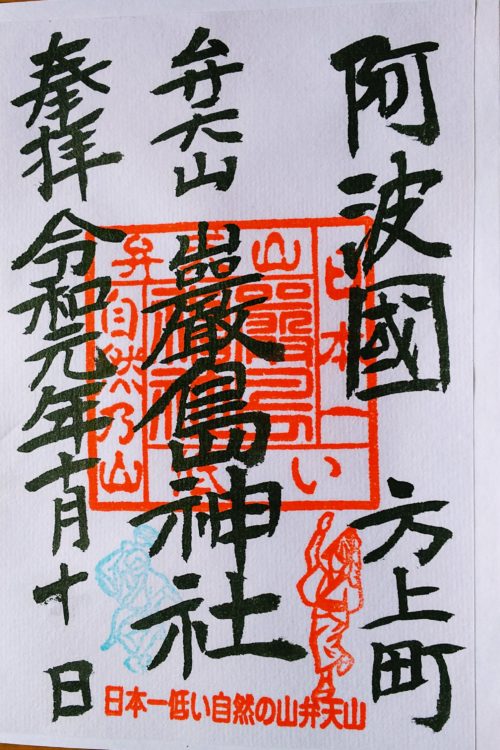 阿波國 方上町
弁天山 巖島神社
奉拝 令和元年十月十日
日本一
低い
自然乃山
弁天山
日本一低い自然の山弁天山